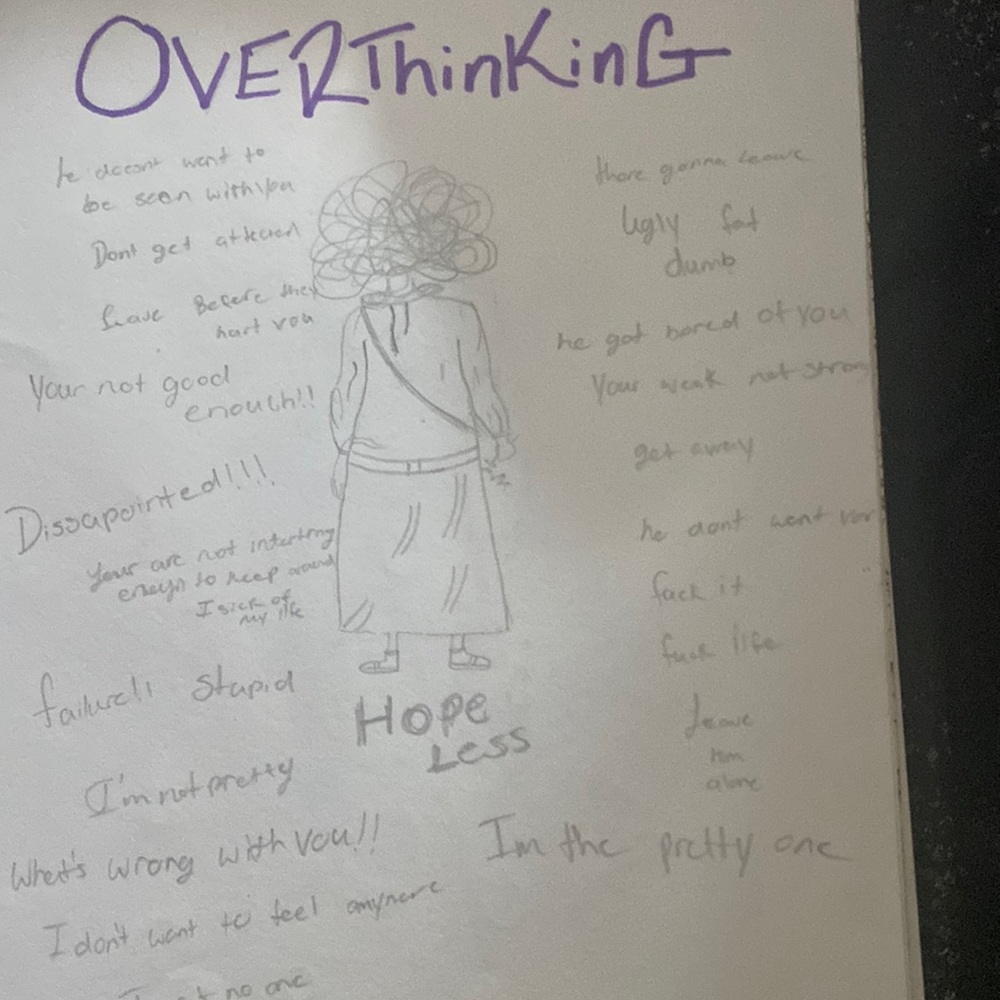 OVERThinKinG
he doesnt want to
be seen with you
Dont get attached
leave Before they
hurt you
Your not good
enough!!
Dissapointed!!!!
Your are not
to keep around
I sick of
my life
failure!! Stupid
I'm not pretty
What's wrong with you!!
I don't want to feel anymore
no one
Hope
Less
there gonna leave
Ugly fat
dumb
he got bored of you
Your weak not strong
get away
he dont want
fuck it
fuck life
leave
him
alone
Im the pretty one